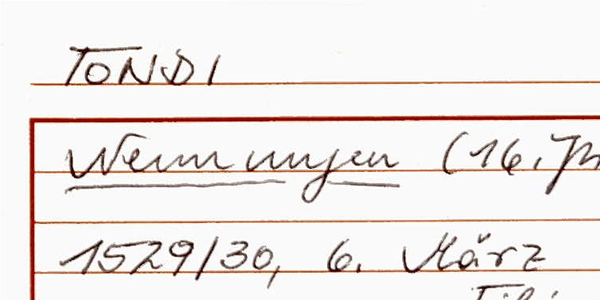 TONDI
Nennungen (16. Jh
1529/30, 6. März